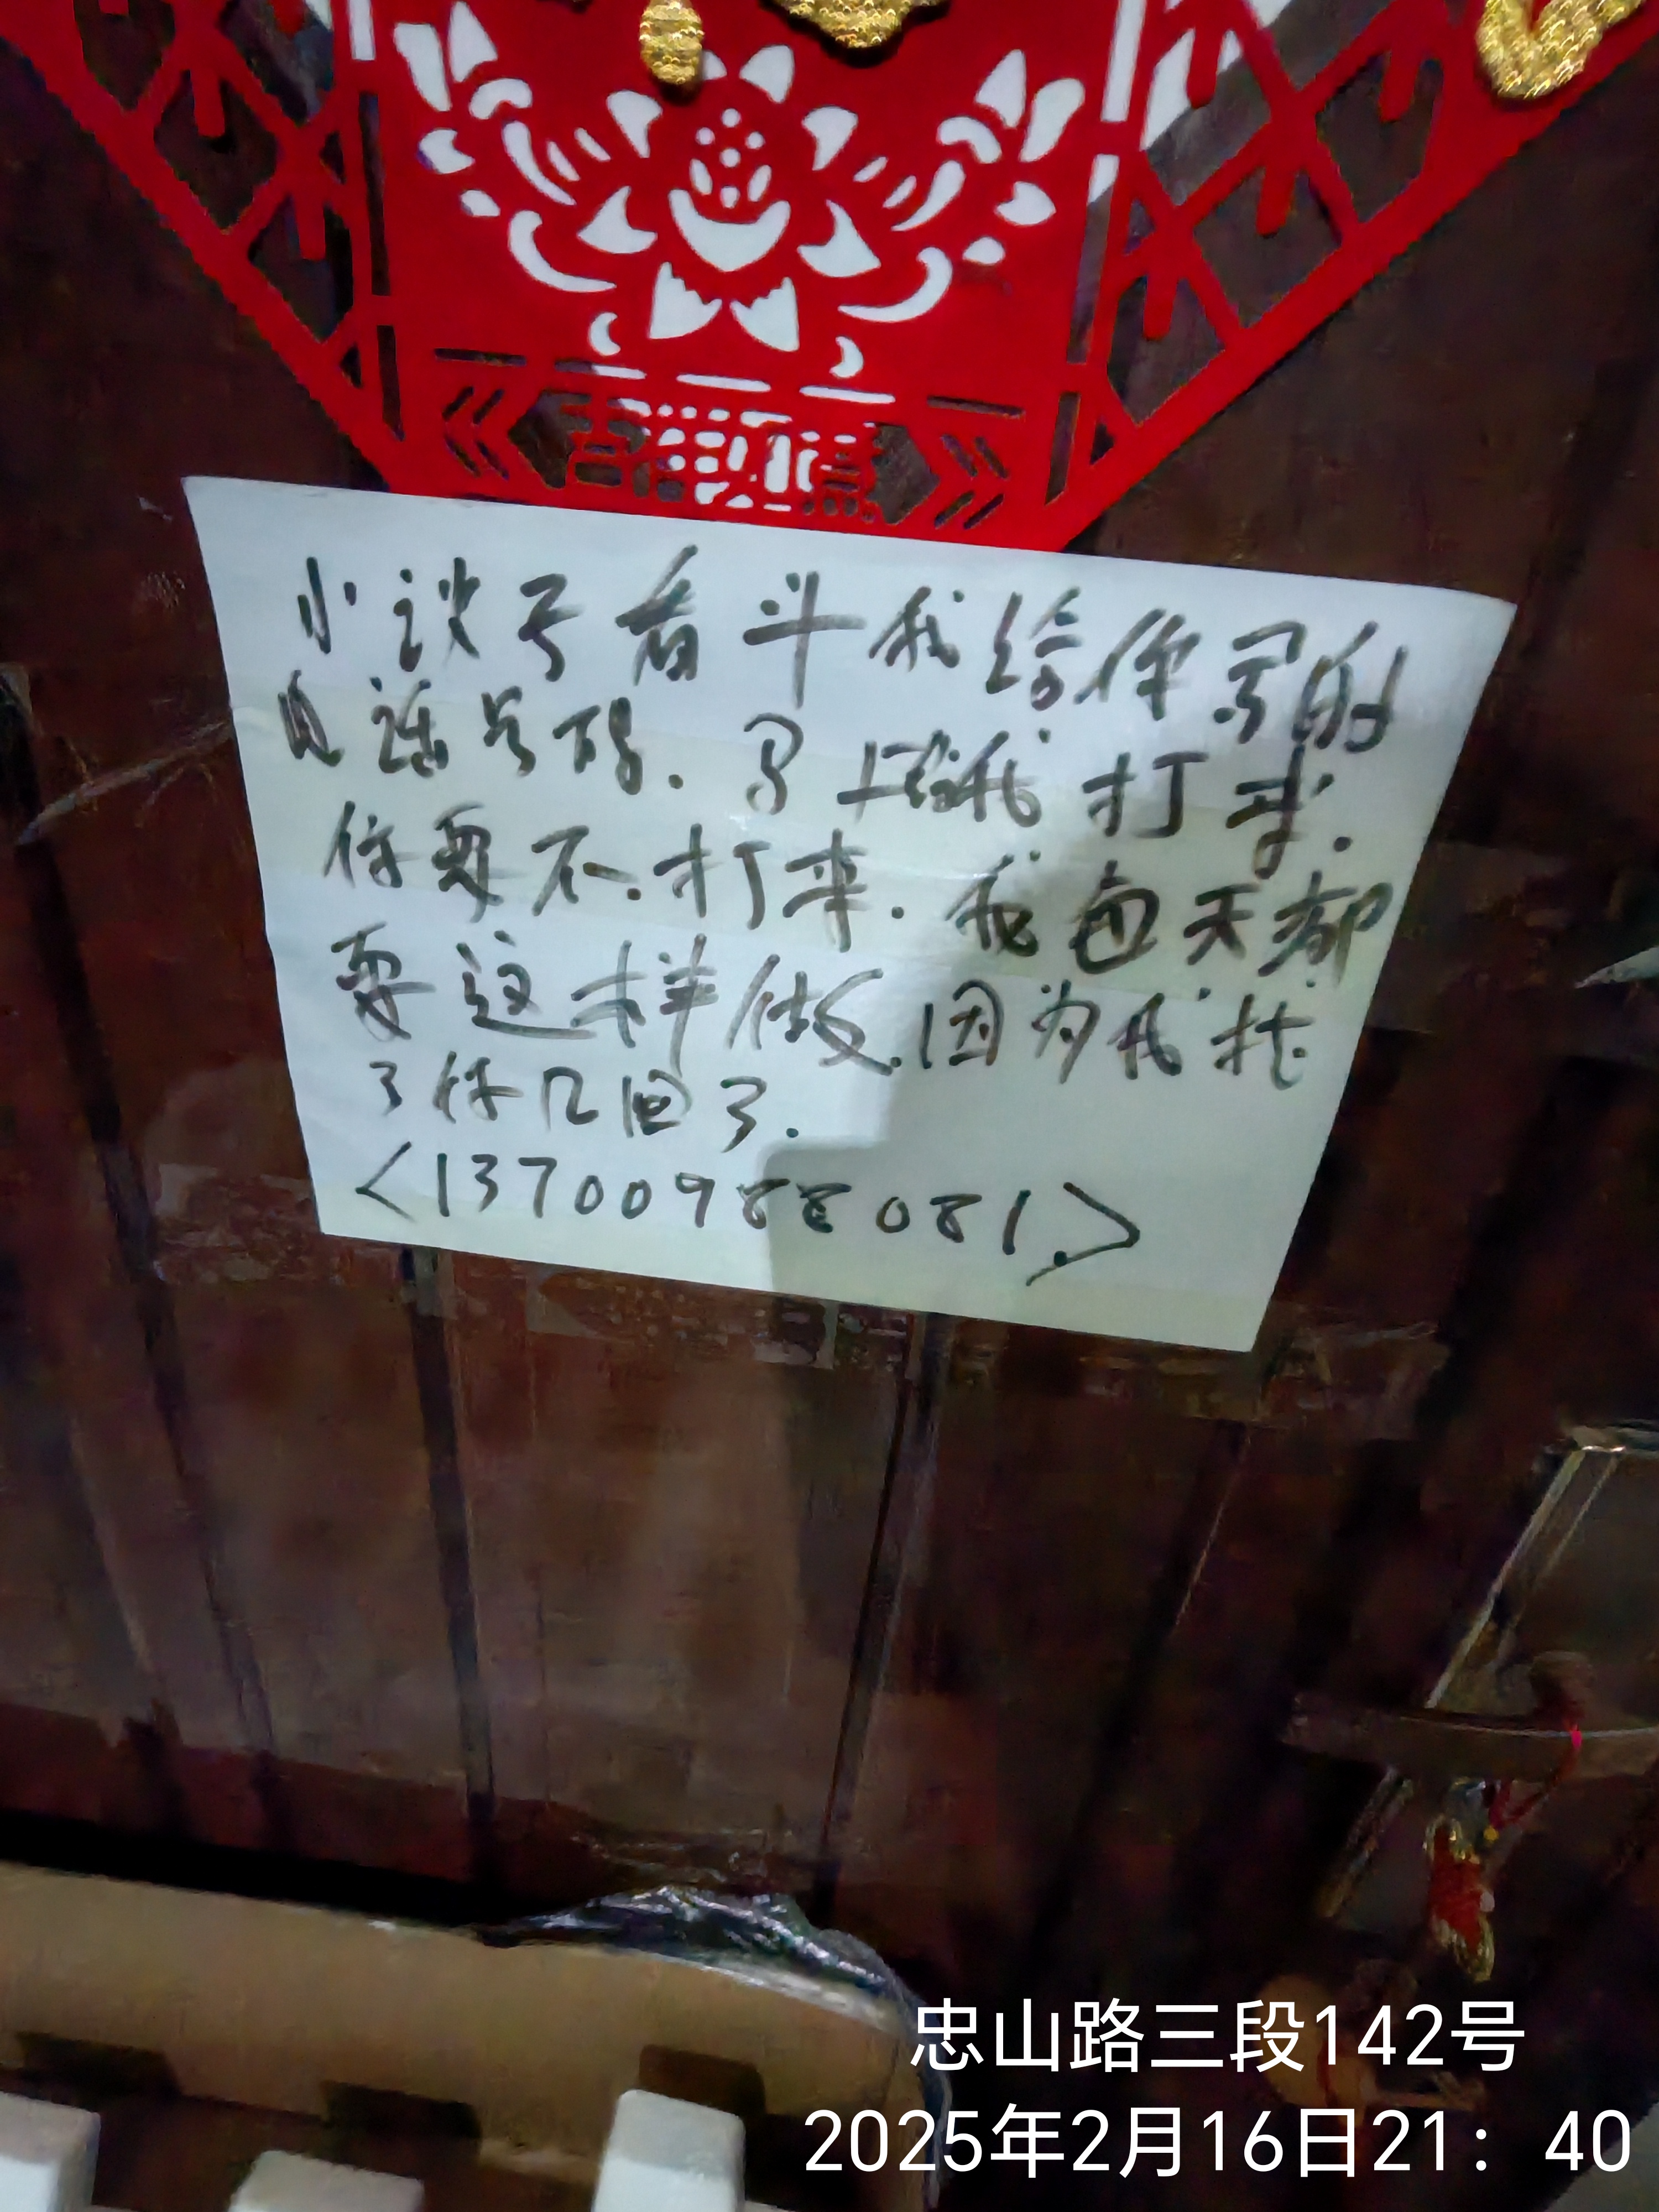 小谈子看斗我给你写的
电话号码.马上给我打来.
你要不打来.我每天都
要这样做.因为我找
了你几回了.
<13700988081.>
忠山路三段142号
2025年2月16日21：40